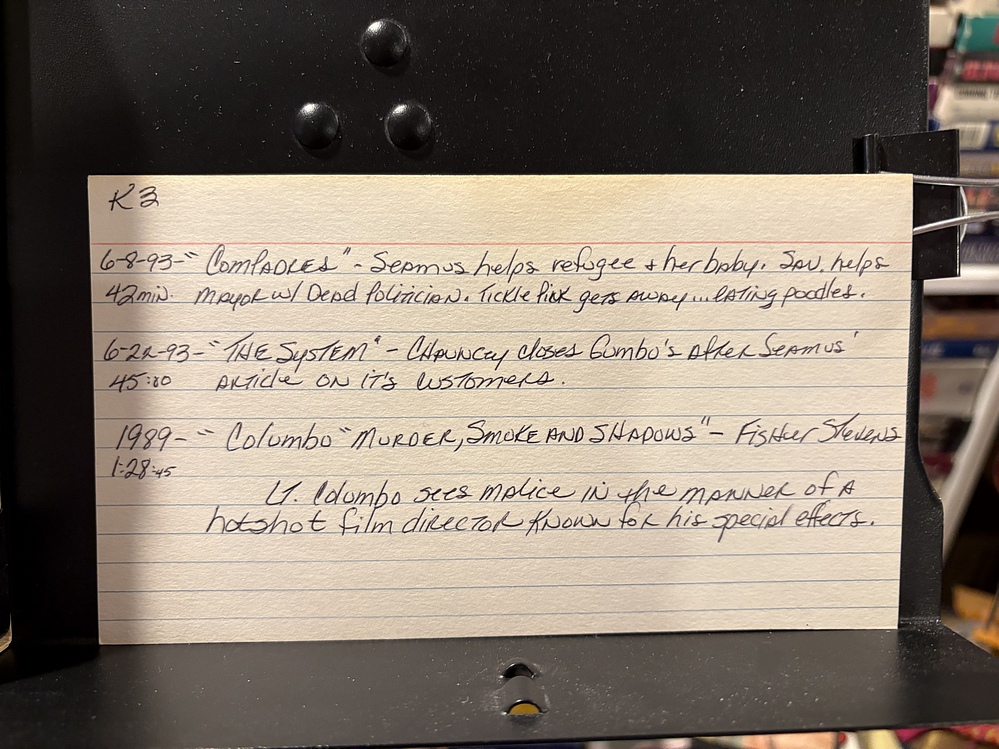 K3
6-8-93-" COMPADRES" - SEAMUS helps refugee & her baby. SAV. helps
42 min. MAYOR w/ DEAD POLITICIAN. TICKLE PINK gets AWAY... EATING poodles.
6-22-93-"THE SYSTEM" - CHAUNCEY closes Gumbo's AFTER SEAMUS'
45:00 ARTICLE ON IT'S CUSTOMERS.
1989- " Columbo "MURDER, SMOKE AND SHADOWS" - FISHER STEVENS
1:28:45
LT. Columbo sees malice in the manner of A
hotshot film director known for his special effects.